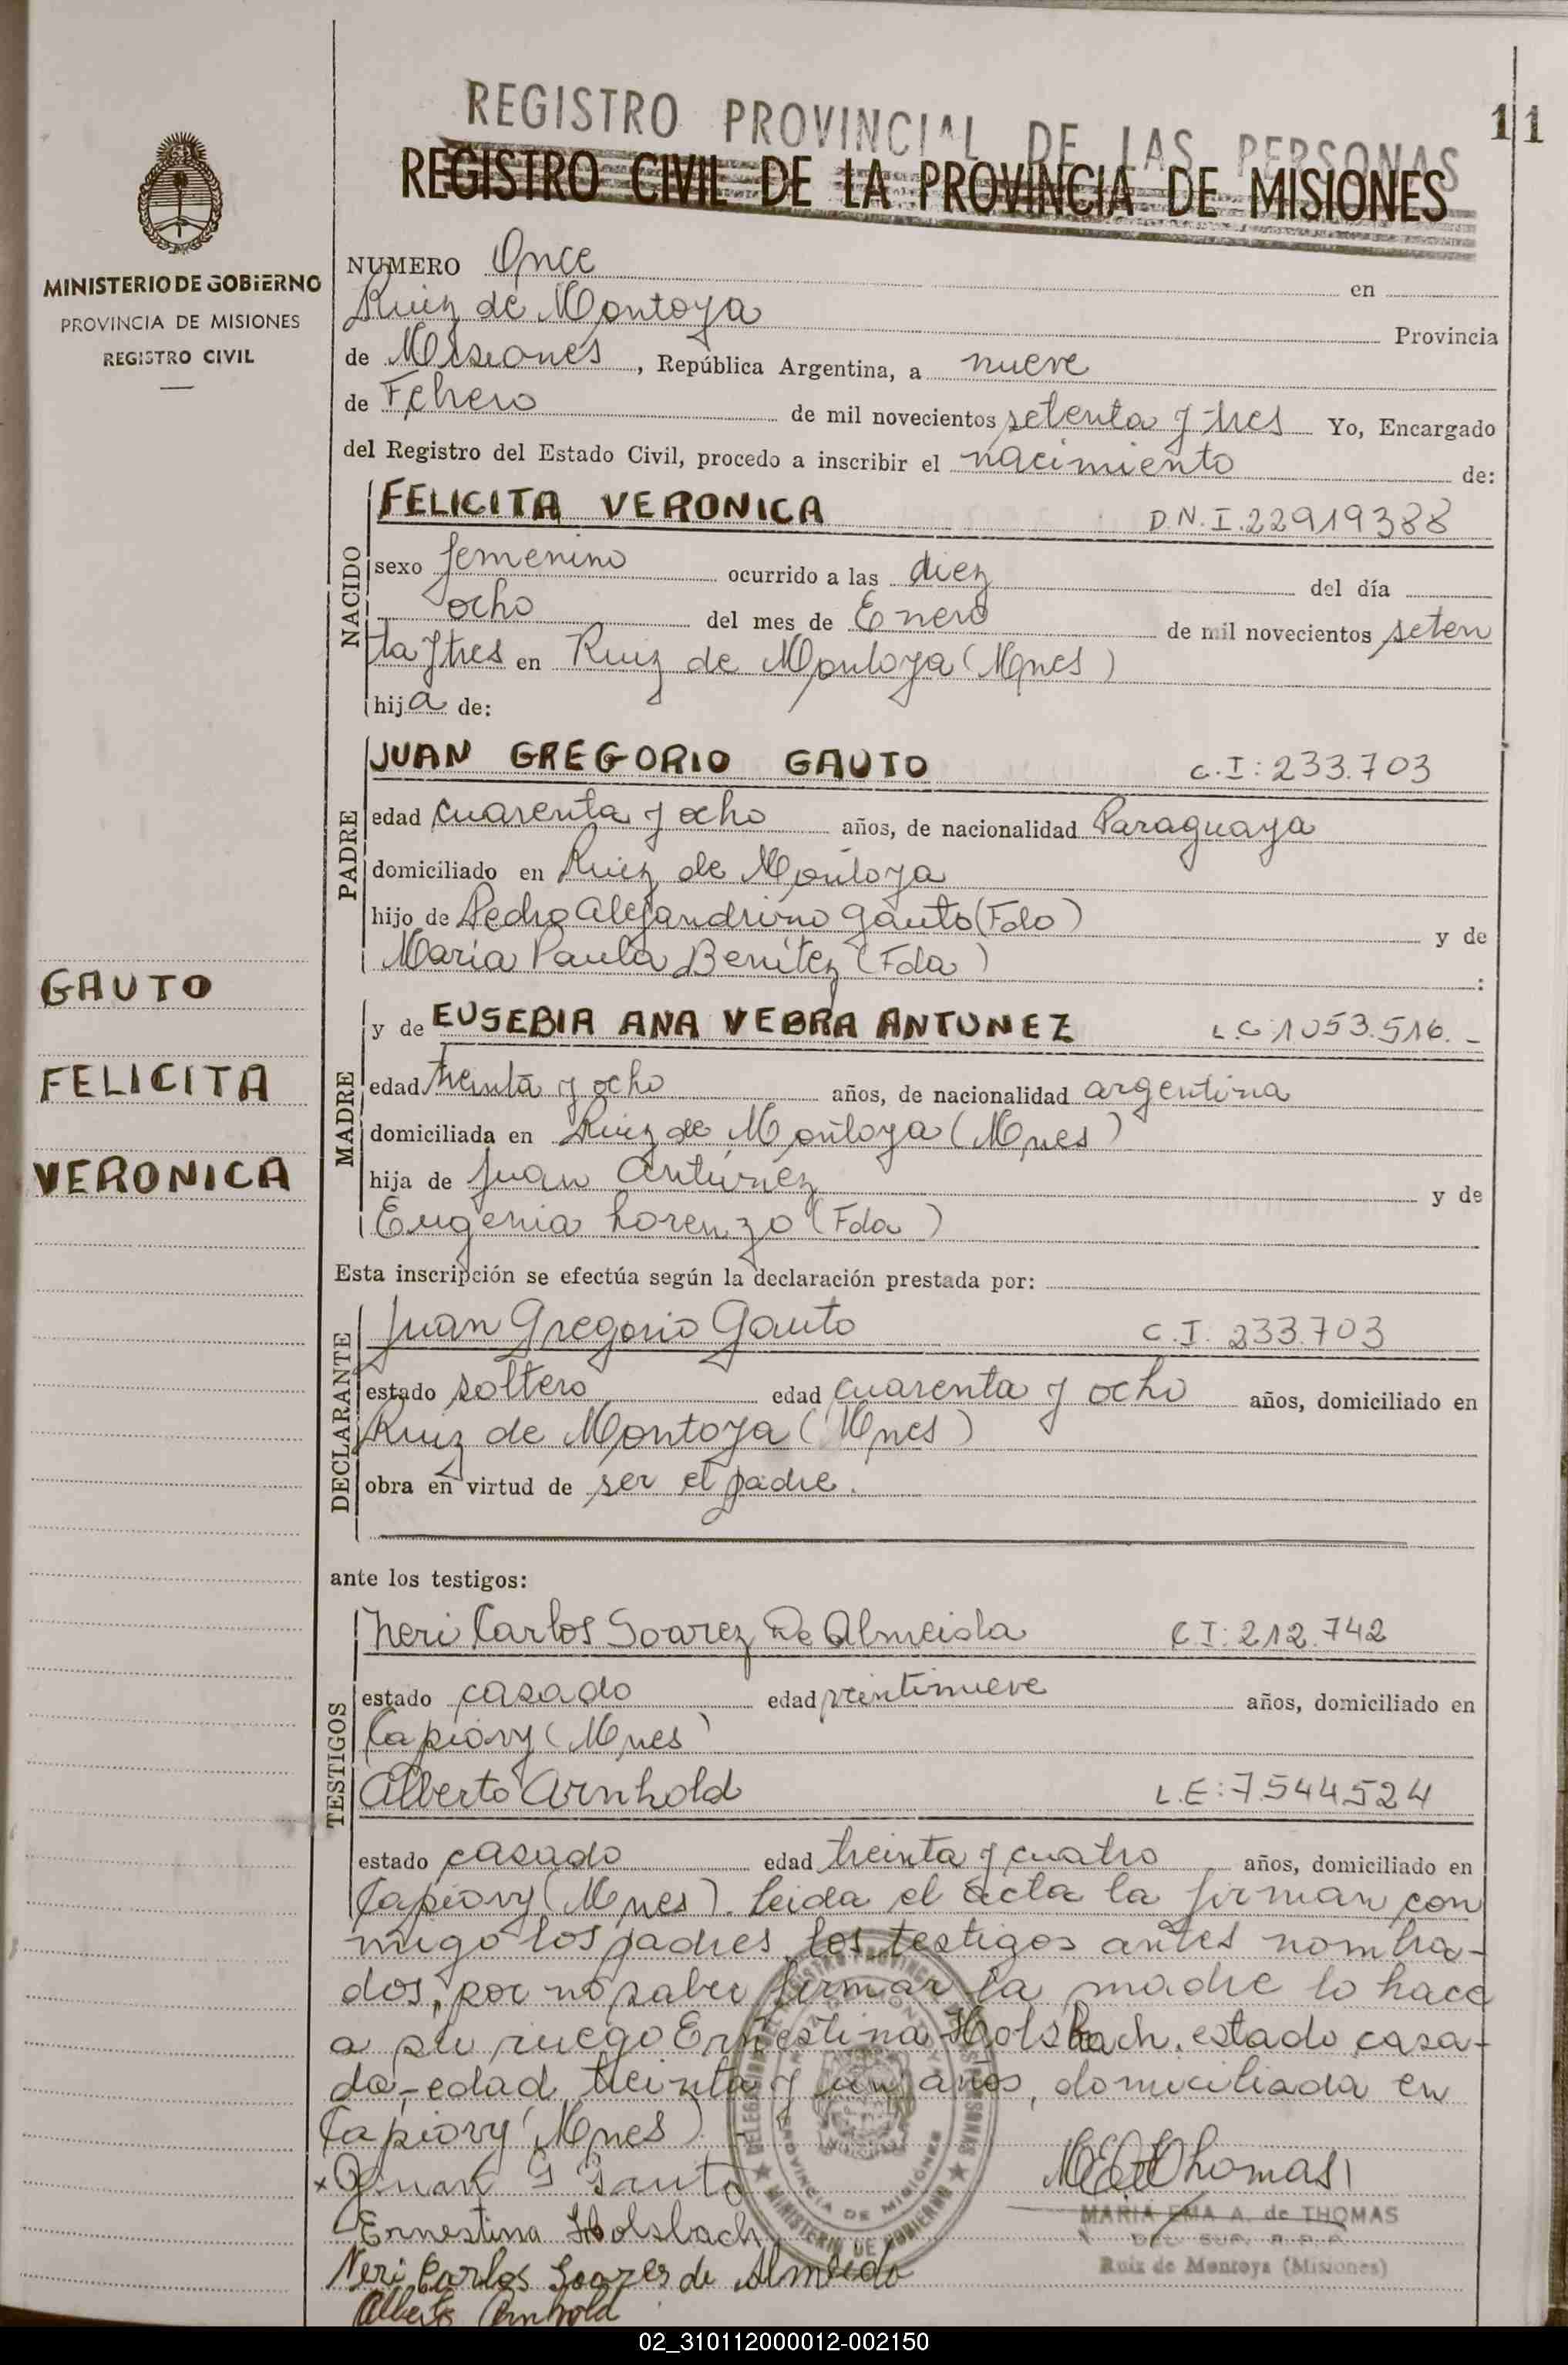 REGISTRO PROVINCIAL DE LAS PERSONAS
11
REGISTRO CIVIL DE LA PROVINCIA DE MISIONES
MINISTERIO DE GOBIERNO
PROVINCIA DE MISIONES
REGISTRO CIVIL
NUMERO Once en
Ruiz de Montoya Provincia
de Misiones, República Argentina, a nueve
de Febrero de mil novecientos setenta y tres Yo, Encargado
del Registro del Estado Civil, procedo a inscribir el nacimiento de:
NACIDO
FELICITA VERONICA D.N.I. 22919388
sexo femenino ocurrido a las diez del día
ocho del mes de Enero de mil novecientos seten
ta y tres en Ruiz de Montoya (Mnes)
hija de:
PADRE
JUAN GREGORIO GAUTO C.I: 233.703
edad cuarenta y ocho años, de nacionalidad Paraguaya
domiciliado en Ruiz de Montoya
hijo de Pedro Alejandrino Gauto (Fdo) y de
María Paula Benítez (Fda) :
GAUTO
FELICITA
VERONICA
MADRE
y de EUSEBIA ANA VEBRA ANTUNEZ L.C 1053.516. -
edad treinta y ocho años, de nacionalidad argentina
domiciliada en Ruiz de Montoya (Mnes)
hija de Juan Antúnez y de
Eugenia Lorenzo (Fda)
Esta inscripción se efectúa según la declaración prestada por:
DECLARANTE
Juan Gregorio Gauto C.I. 233.703
estado soltero edad cuarenta y ocho años, domiciliado en
Ruiz de Montoya (Mnes)
obra en virtud de ser el padre.
ante los testigos:
TESTIGOS
Neri Carlos Soarez De Almeida C.I: 212.742
estado casado edad veintinueve años, domiciliado en
Capiovy (Mnes)
Alberto Arnhold L.E: 7.544.524
estado casado edad treinta y cuatro años, domiciliado en
Capiovy (Mnes). Leida el acta la firman con
migo los padres los testigos antes nombra-
dos, por no saber firmar la madre lo hace
a su ruego Ernestina Holsbach, estado casa-
da, edad treinta y un años, domiciliada en
Capiovy (Mnes)
Juan G Gauto
Ernestina Holsbach
Neri Carlos Soares de Almeida
Alberto Arnhold
MARIA EMA A. de THOMAS
DEL. SUP. R. P. P.
Ruiz de Montoya (Misiones)
PROVINCIA DE MISIONES
MINISTERIO DE GOBIERNO
02_310112000012-002150